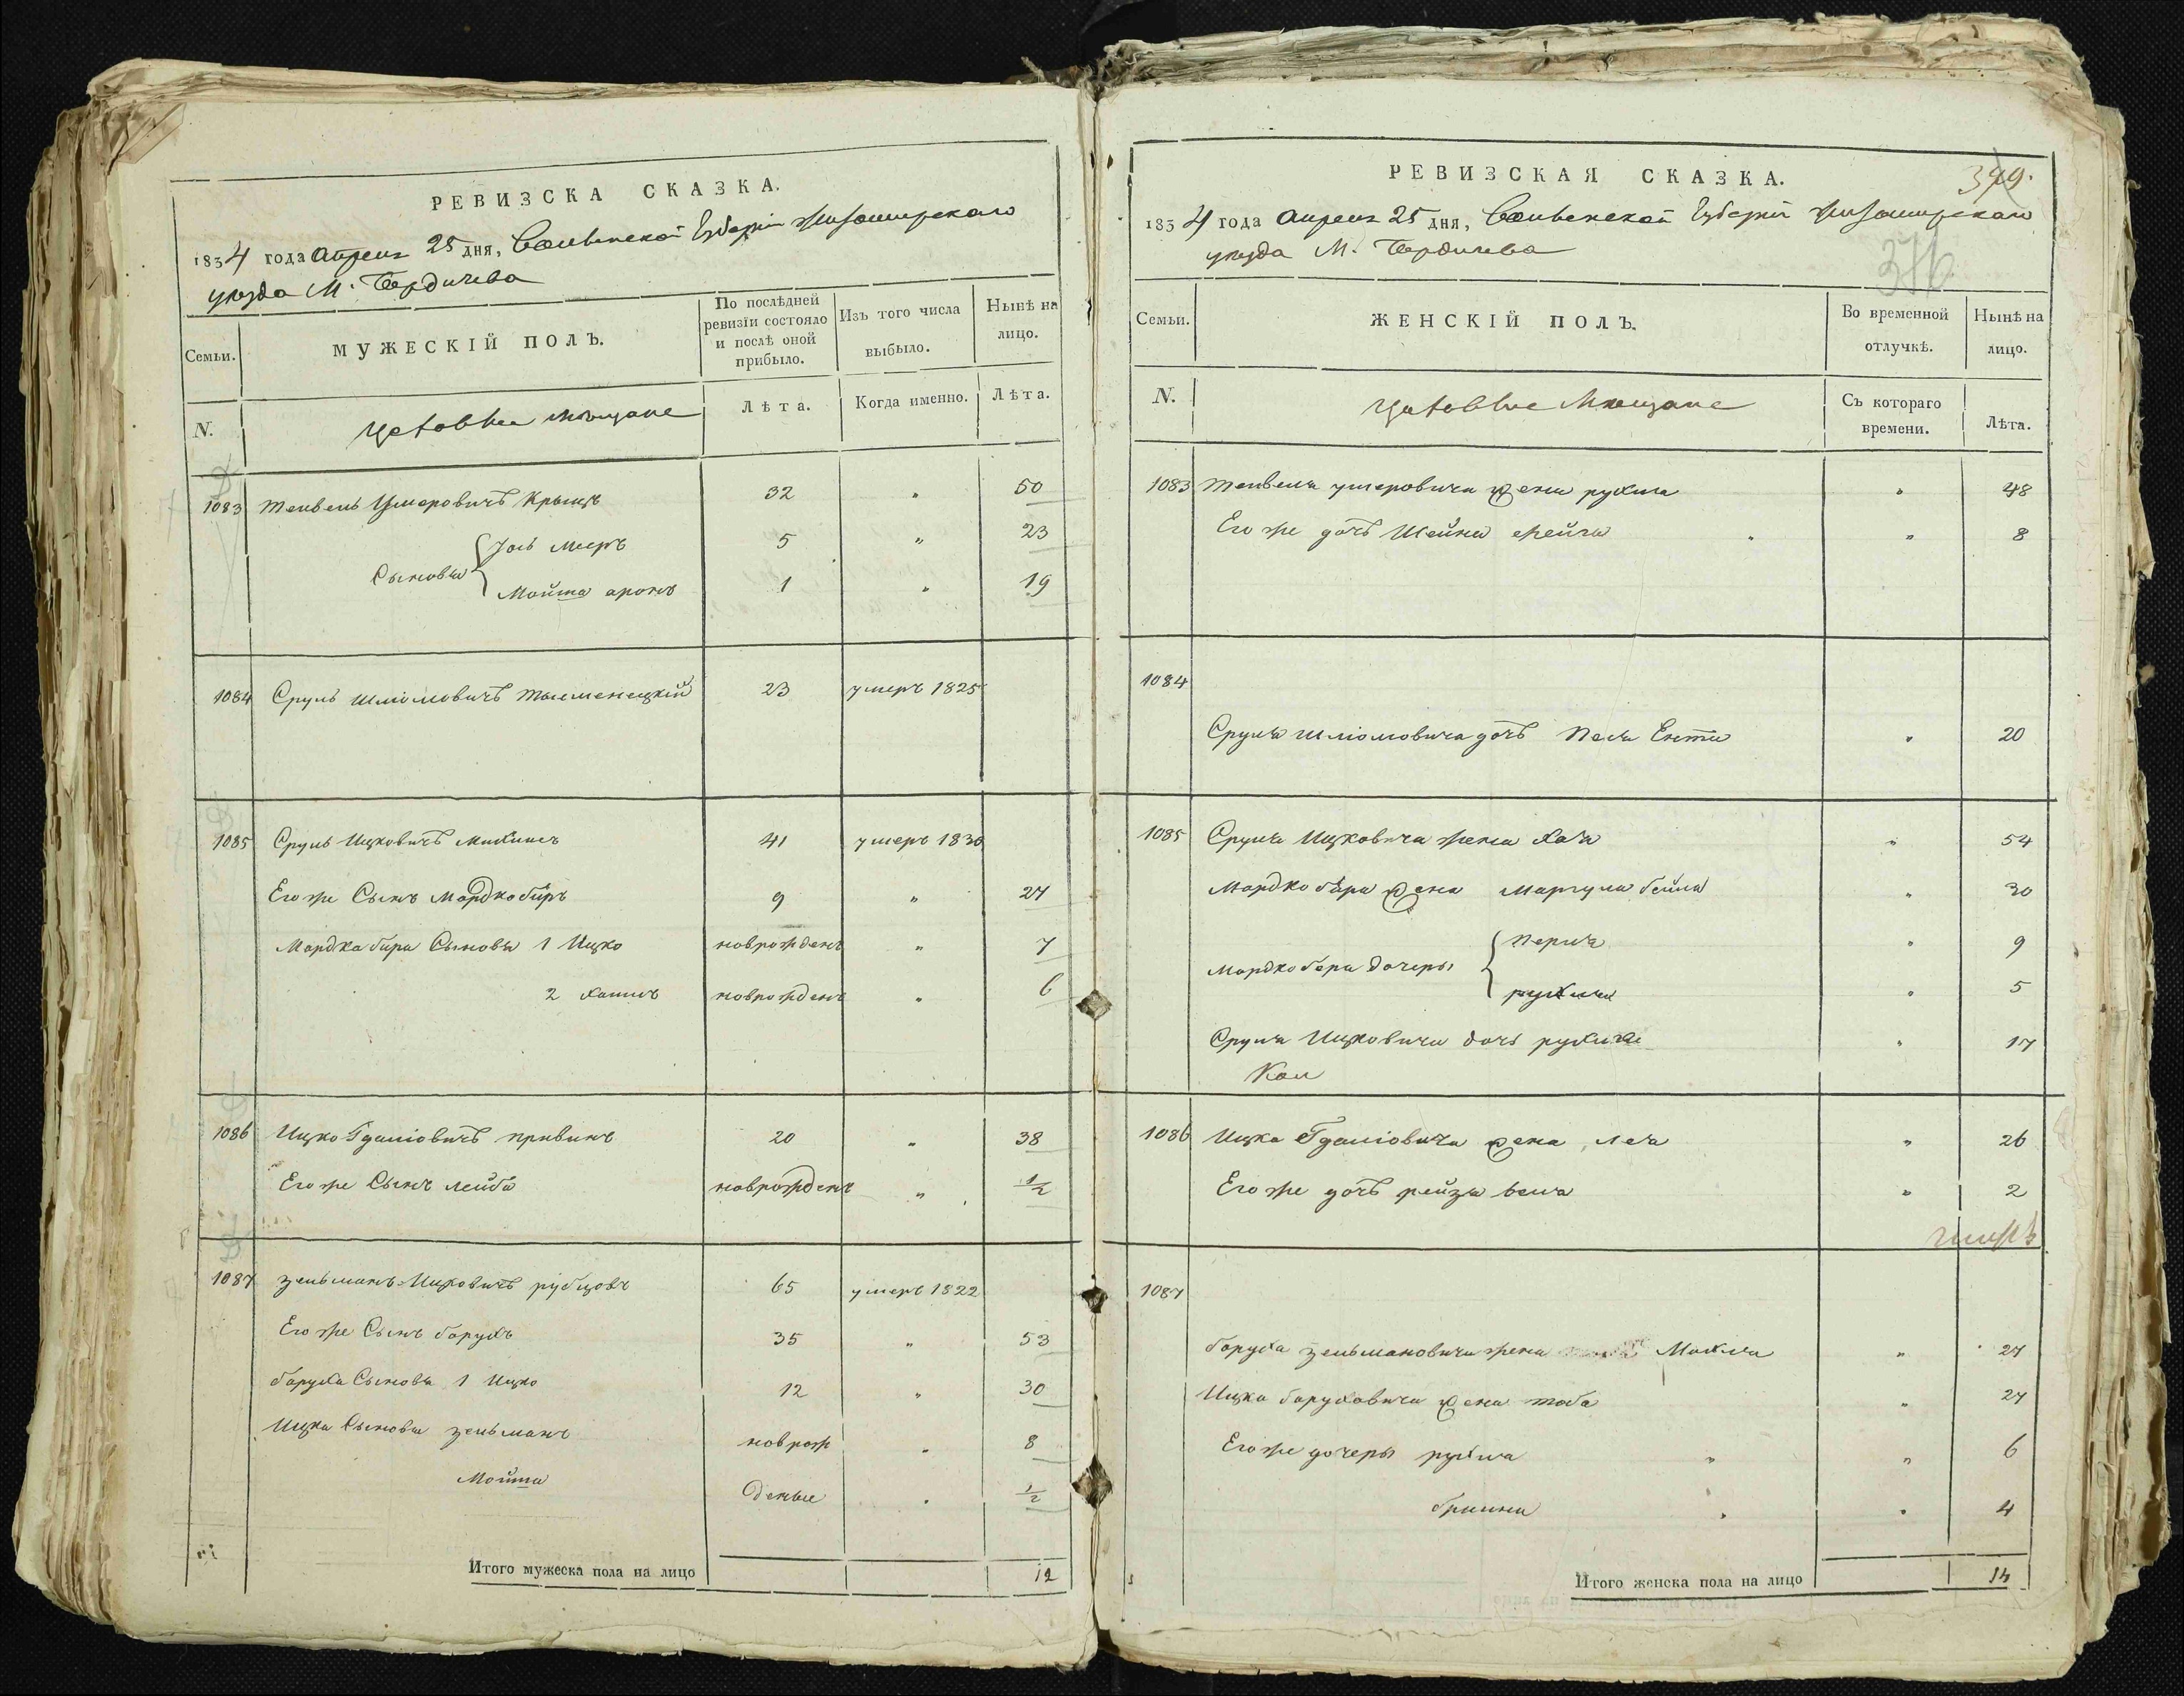 РЕВИЗСКА СКАЗКА.
1834 года Апреля 25 дня, Волынской Губернии Житомирскаго
уезда М. Бердичева
Семьи.
МУЖЕСКІЙ ПОЛЪ.
По послѣдней ревизіи состояло и послѣ оной прибыло.
Изъ того числа выбыло.
Нынѣ на лицо.
N.
мещане
Лѣта.
Когда именно.
Лѣта.
1083 Тевель Умеровичъ 32 " 50
Сыновья Іось Мееръ 5 " 23
Мошка аронъ 1 " 19
1084 Сруль Шліомовичъ Тысменецкій 23 умеръ 1825
1085 Сруль Ицковичъ 41 умеръ 1830
Его же Сынъ Мордко биръ 9 " 27
Мордка бира Сыновья 1 Ицко новрожденъ " 7
2 новрожденъ " 6
1086 Ицко Гдаліовичъ 20 " 38
Его же Сынъ лейба новрожденъ " 1/2
1087 зельманъ Ицковичъ рубцовъ 65 умеръ 1822
Его же Сынъ барухъ 35 " 53
баруха Сыновья 1 Ицко 12 " 30
Ицка Сыновья зельманъ новрож " 8
Мошка деные " 1/2
Итого мужеска пола на лицо 12
РЕВИЗСКАЯ СКАЗКА.
1834 года Апреля 25 дня, Волынской Губернии Житомирскаго
уезда М. Бердичева
376
Семьи.
ЖЕНСКІЙ ПОЛЪ.
Во временной отлучкѣ.
Нынѣ на лицо.
N.
Мещане
Съ котораго времени.
Лѣта.
1083 Тевеля Умеровича жена рухля " 48
Его же дочь Шейна " 8
1084
Сруля Шліомовича дочь Песя Ента " 20
1085 Сруля Ицковича жена хая " 54
Мордко бира жена Маргуля бейла " 30
Мордко бера дочеры перля " 9
рухля " 5
Сруля Ицковича дочь " 17
1086 Ицка Гдаліовича жена лея " 26
Его же дочь рейзя " 2
1087
баруха зельмановича жена " 27
Ицка баруховича жена тоба " 27
Его же дочеры рухля " 6
" 4
Итого женска пола на лицо 14